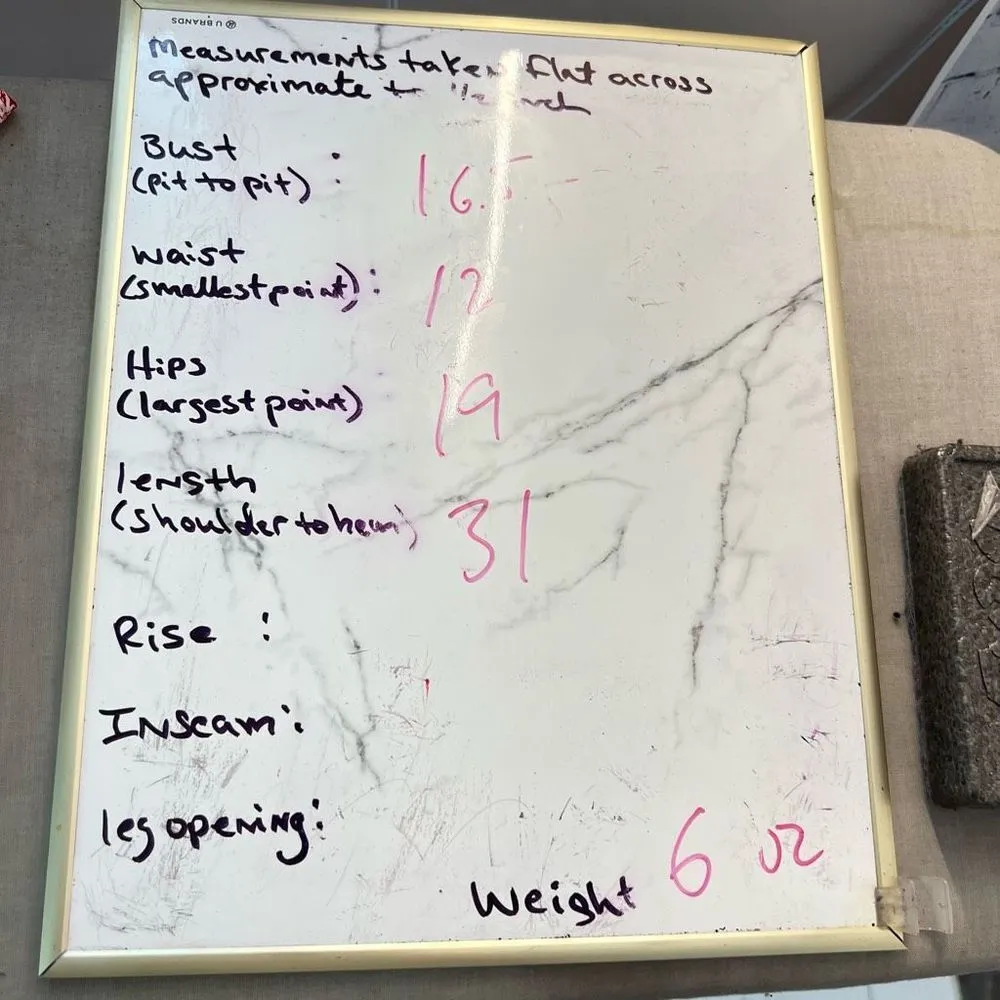 U BRANDS
Measurements taken flat across
approximate to 1/2 inch
Bust
(pit to pit) :
16.5
waist
(smallest point) :
12
Hips
(largest point)
19
length
(shoulder to hem)
31
Rise :
Inseam :
leg opening :
Weight 6 oz